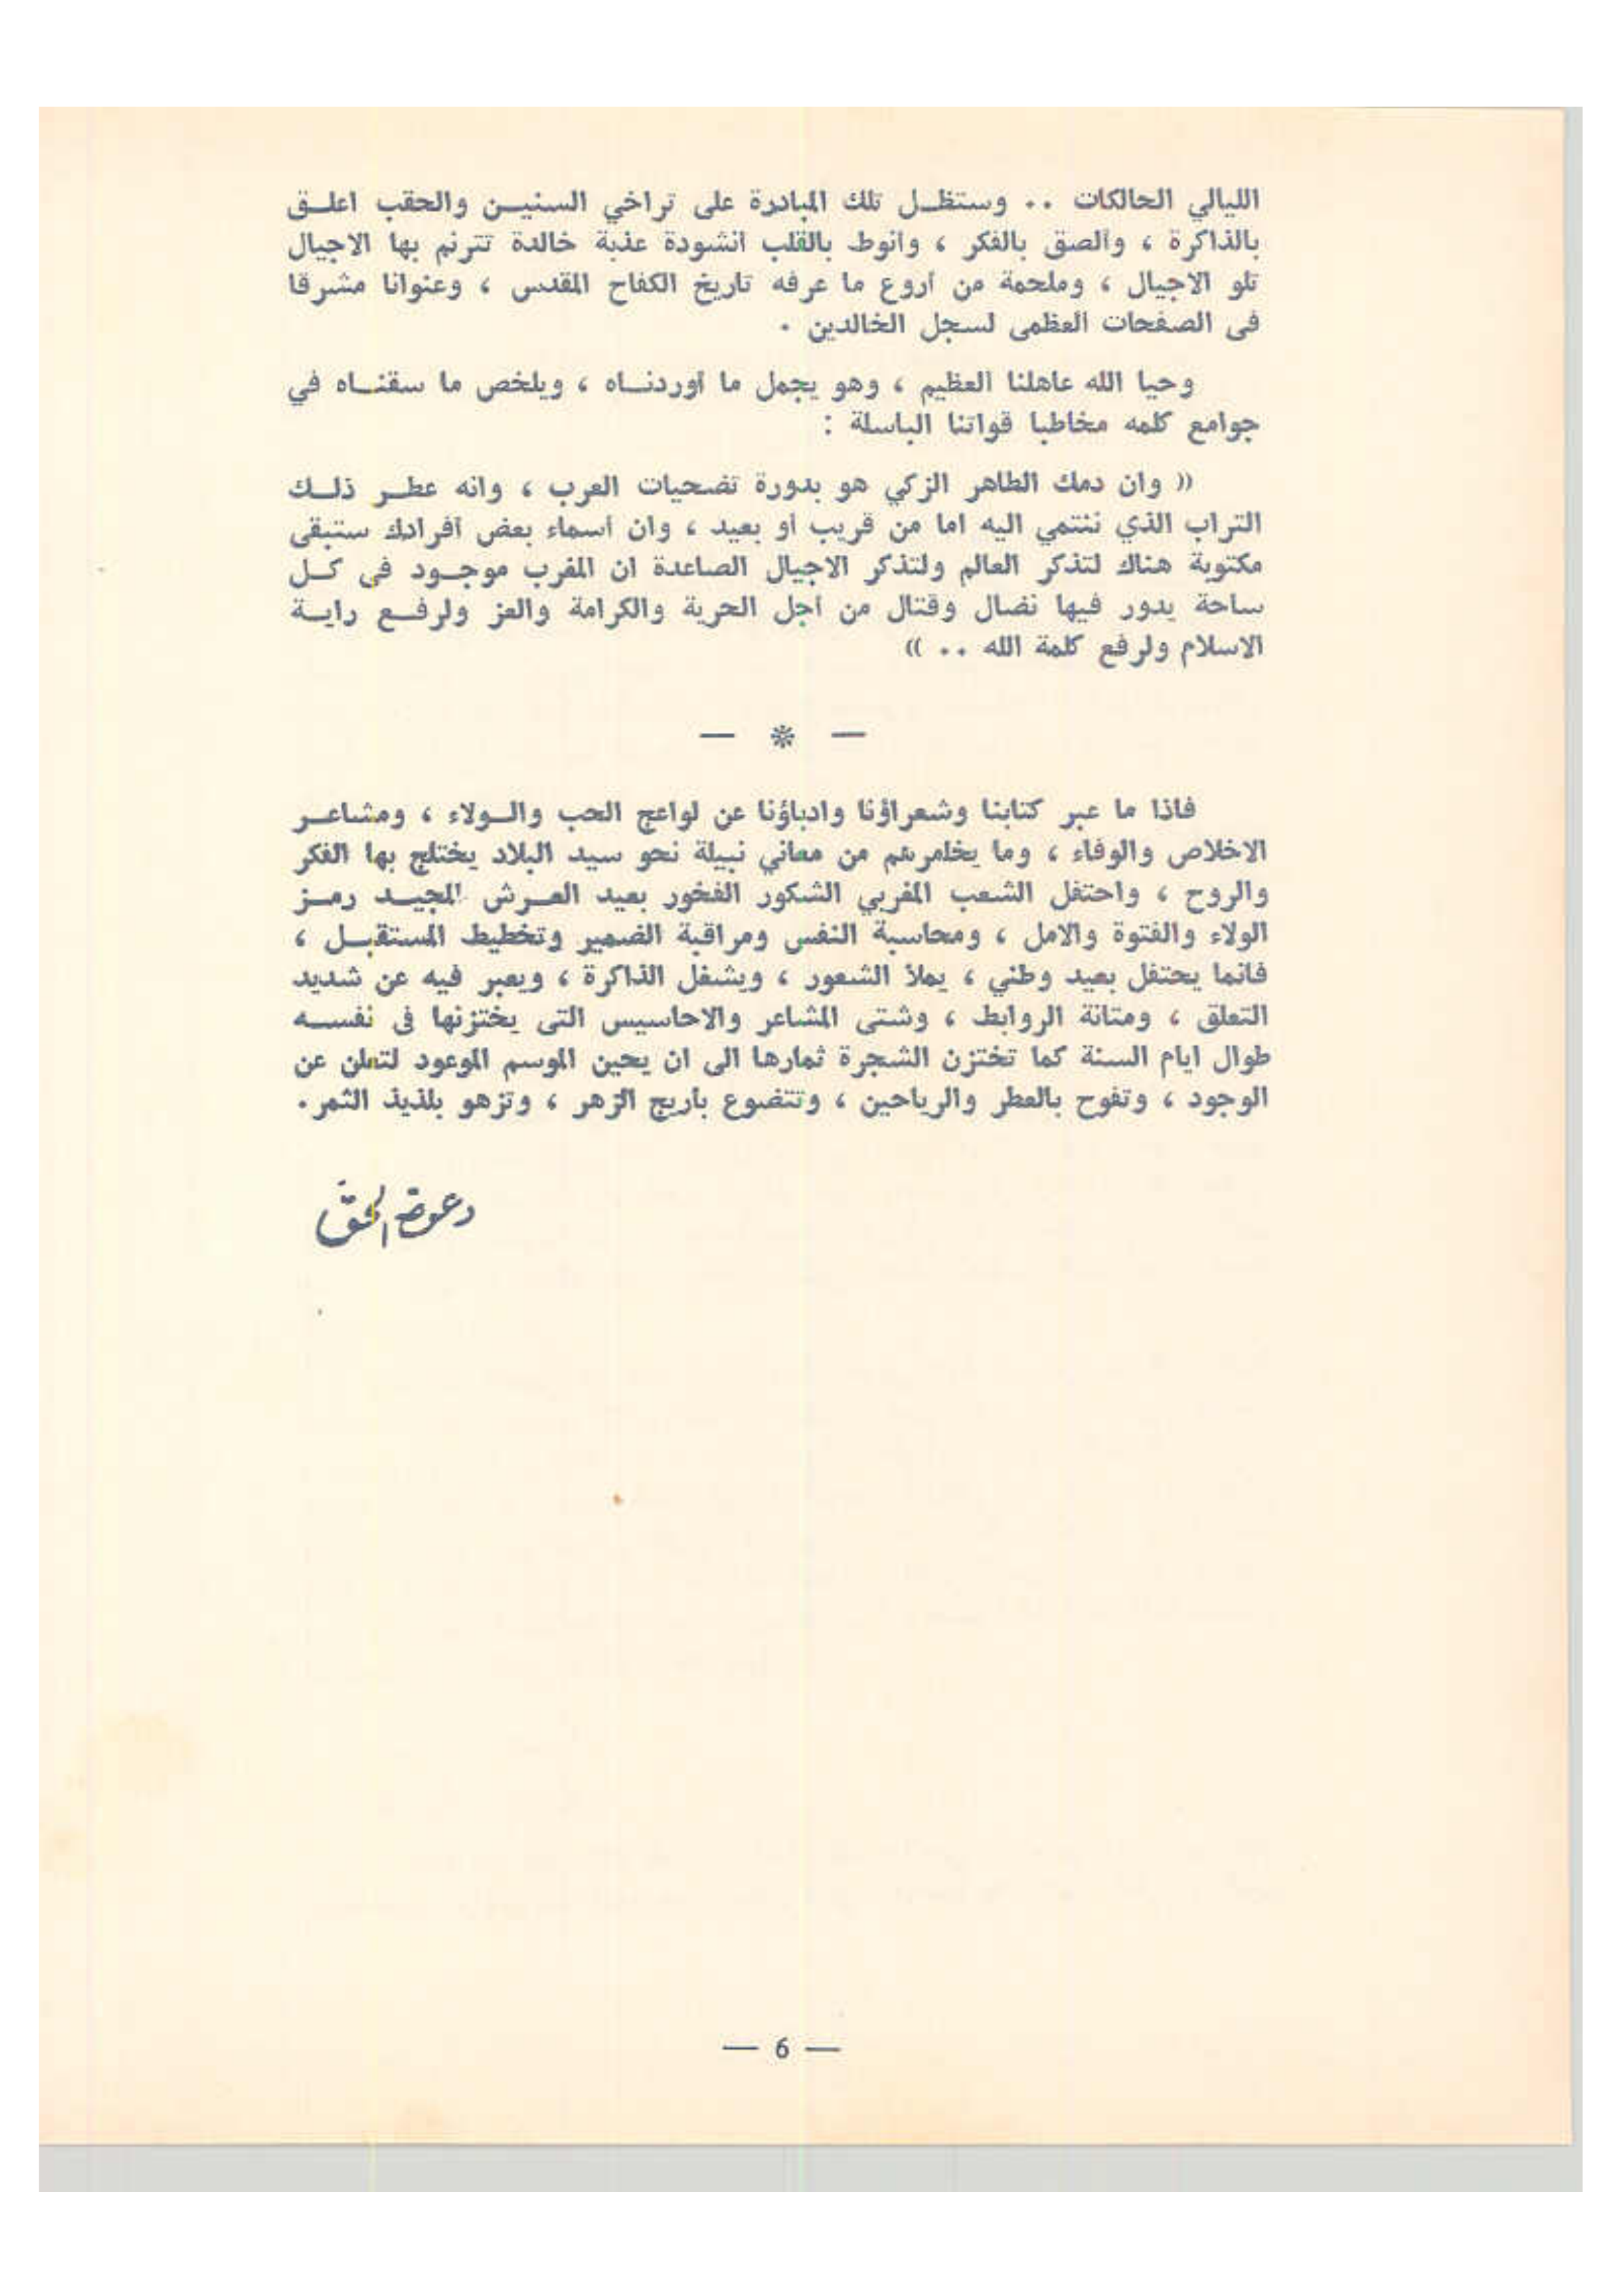 الليالي الحالكات .. وستظل تلك المبادرة على تراخي السنين والحقب اعلق
بالذاكرة ، والصق بالفكر ، وانوط بالقلب انشودة عذبة خالدة تترنم بها الاجيال
تلو الاجيال ، وملحمة من أروع ما عرفه تاريخ الكفاح المقدس ، وعنوانا مشرقا
فى الصفحات العظمى لسجل الخالدين .
وحيا الله عاهلنا العظيم ، وهو يجمل ما أوردناه ، ويلخص ما سقناه في
جوامع كلمه مخاطبا قواتنا الباسلة :
(( وان دمك الطاهر الزكي هو بدورة تضحيات العرب ، وانه عطر ذلك
التراب الذي ننتمي اليه اما من قريب أو بعيد ، وان أسماء بعض أفرادك ستبقى
مكتوبة هناك لتذكر العالم ولتذكر الاجيال الصاعدة ان المغرب موجود فى كل
ساحة يدور فيها نضال وقتال من أجل الحرية والكرامة والعز ولرفع راية
الاسلام ولرفع كلمة الله .. ))
— * —
فاذا ما عبر كتابنا وشعراؤنا وادباؤنا عن لواعج الحب والولاء ، ومشاعر
الاخلاص والوفاء ، وما يخامرهم من معاني نبيلة نحو سيد البلاد يختلج بها الفكر
والروح ، واحتفل الشعب المغربي الشكور الفخور بعيد العرش المجيد رمز
الولاء والفتوة والامل ، ومحاسبة النفس ومراقبة الضمير وتخطيط المستقبل ،
فانما يحتفل بعيد وطني ، يملأ الشعور ، ويشغل الذاكرة ، ويعبر فيه عن شديد
التعلق ، ومتانة الروابط ، وشتى المشاعر والاحاسيس التى يختزنها فى نفسه
طوال ايام السنة كما تختزن الشجرة ثمارها الى ان يحين الموسم الموعود لتعلن عن
الوجود ، وتفوح بالعطر والرياحين ، وتتضوع بأريج الزهر ، وتزهو بلذيذ الثمر.
دعوة الحق
— 6 —